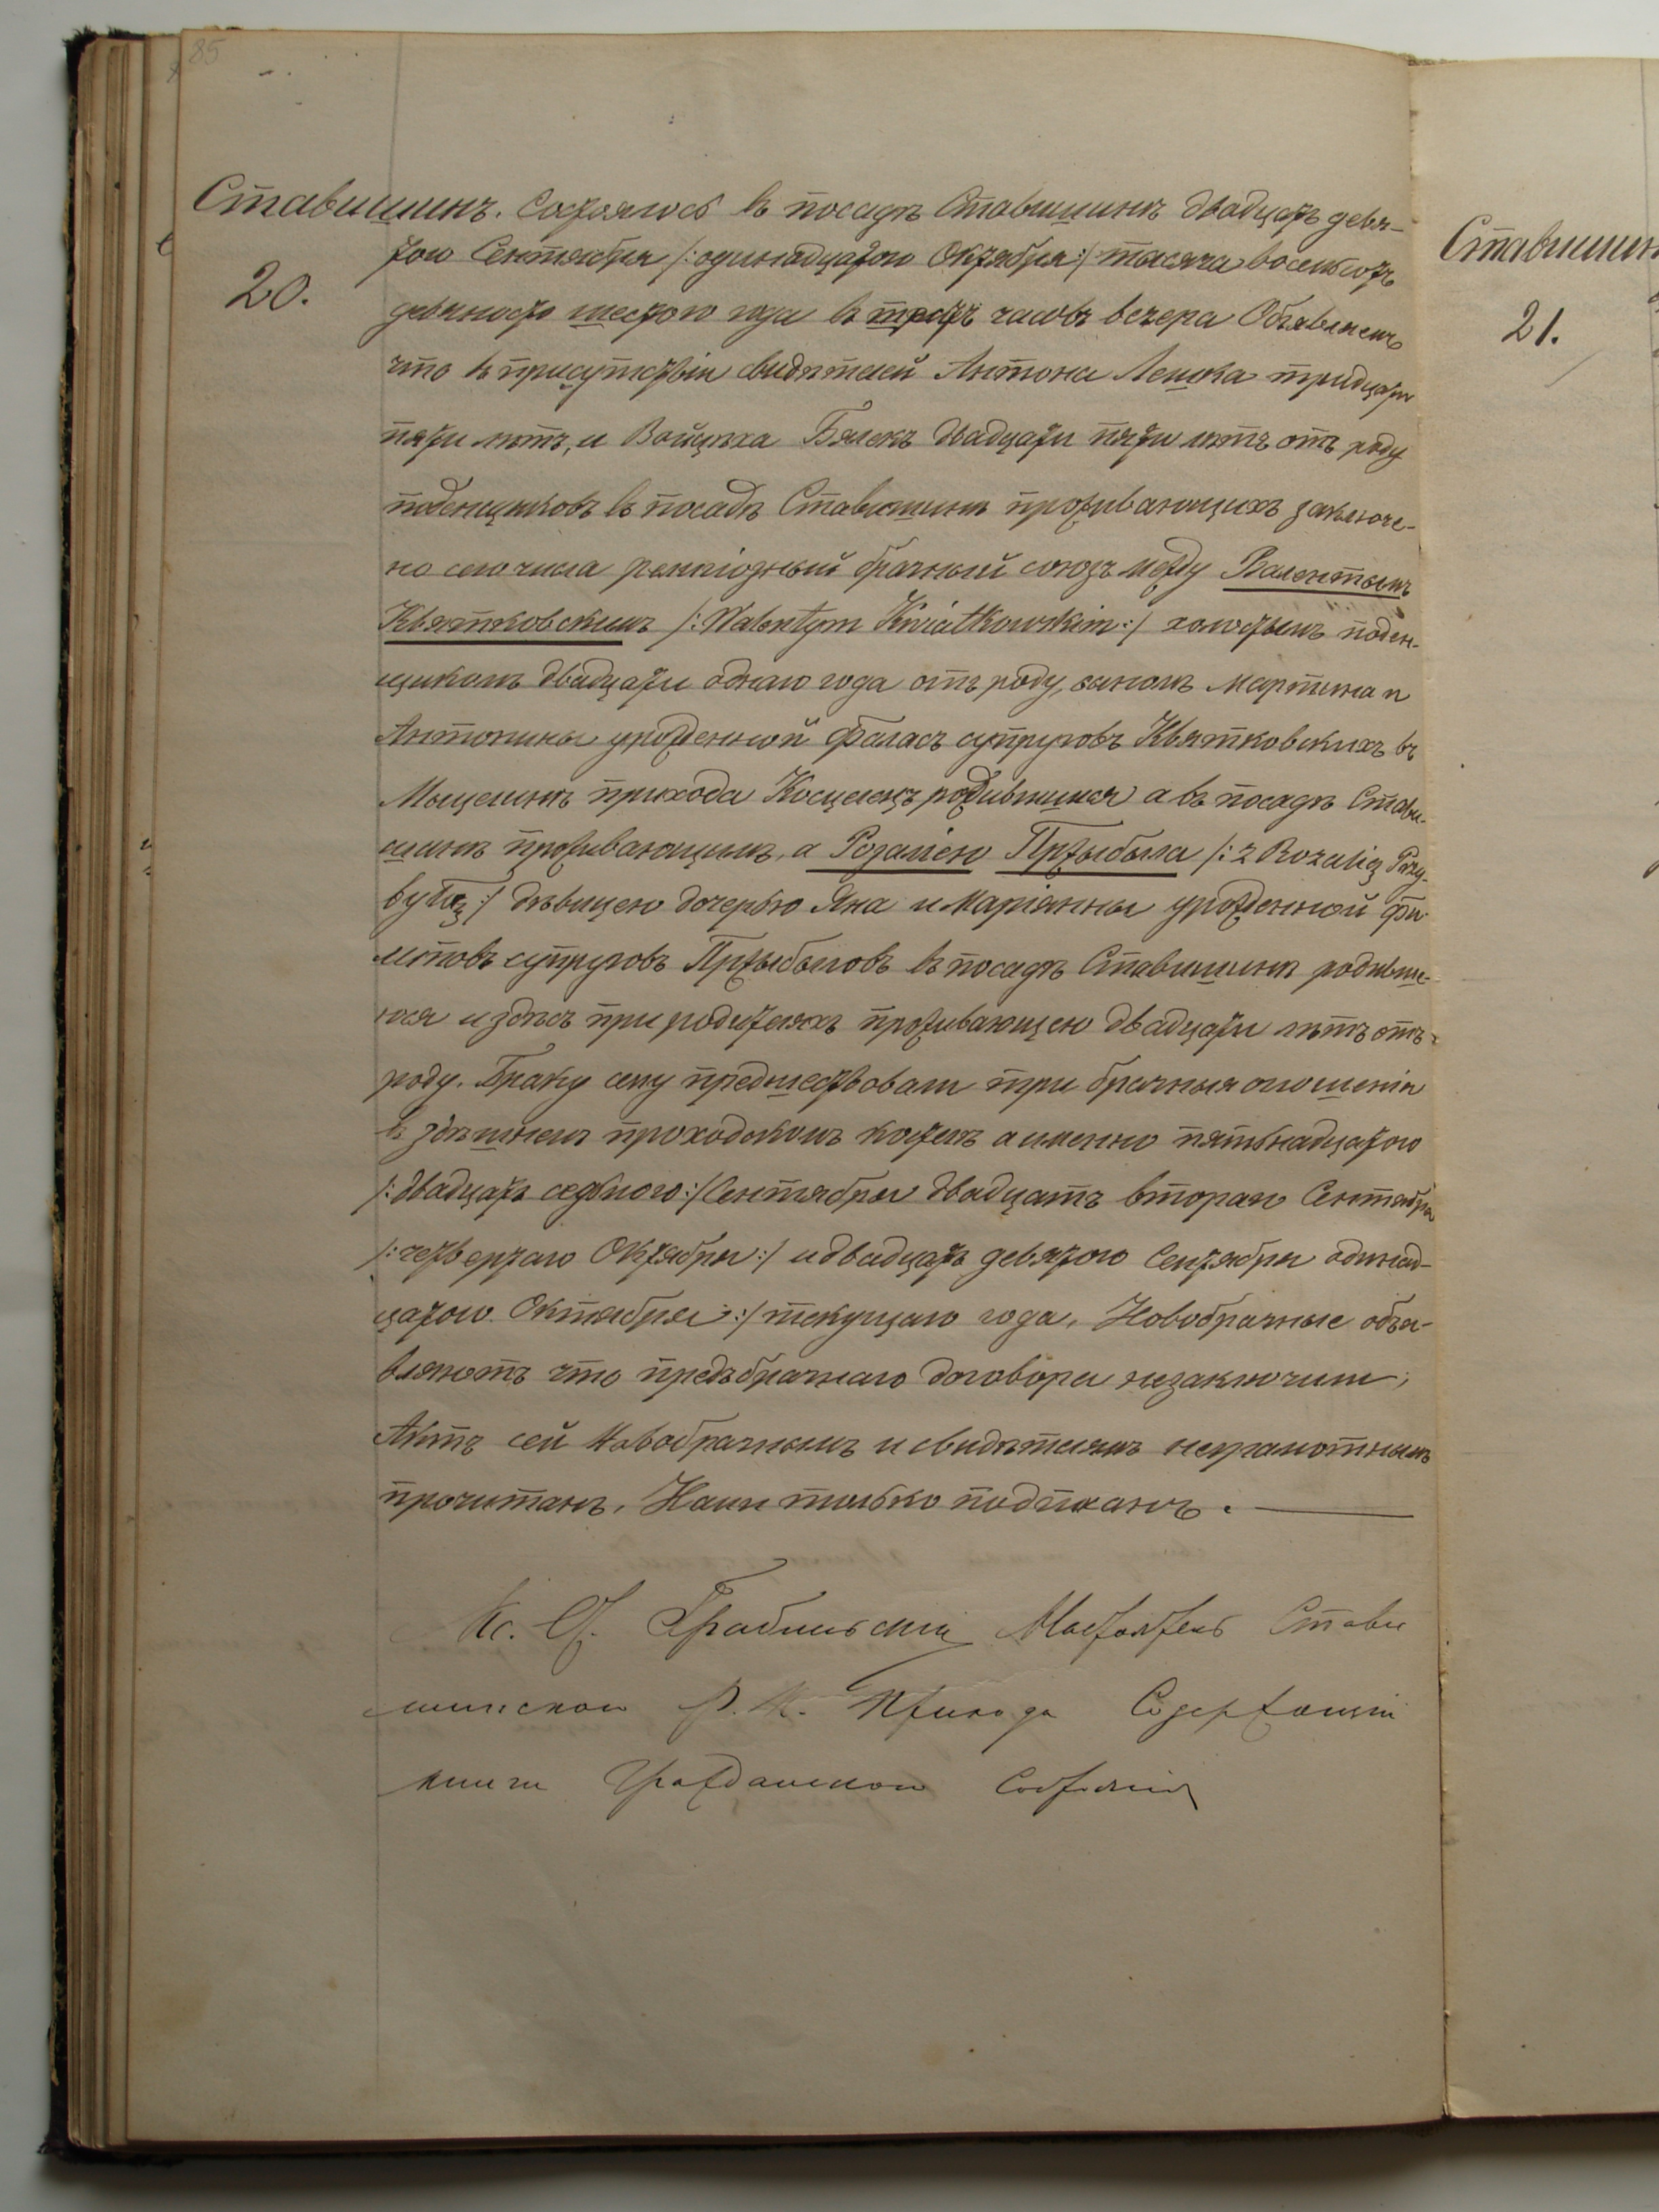 85
Ставишинъ. Состоялось въ посадѣ Ставишинѣ двадцать девя-
20.
того Сентября /:одинадцатого Октября:/ тысяча восемьсотъ
девяносто шестого года въ три часовъ вечера Объявляемъ
что въ присутствіи свидѣтелей Антона Лешка тридцати
пяти лѣтъ, и Войцѣха Бялекъ двадцати пяти лѣтъ отъ роду
поденщиковъ въ посадѣ Ставишинѣ проживающихъ заключе-
но сего числа религіозный брачный союзъ между Валентымъ
Квятковскимъ /:Walentym Kwiatkowskim:/ холостымъ поден-
щикомъ двадцати одного года отъ роду, сыномъ Мартина и
Антонины урожденной Фаласъ супруговъ Квятковскихъ въ
Мыцелинѣ прихода Косцелецъ родившимся а въ посадѣ Стави-
шинѣ проживающимъ, а Розаліею Пржыбыла /:z Rozalią Przy-
byłą:/ дѣвицею дочерью Яна и Маріанны урожденной Фи-
липовъ супруговъ Пржыбыловъ въ посадѣ Ставишинѣ родивше-
юся и здѣсь при родителяхъ проживающею двадцати лѣтъ отъ
роду. Браку сему предшествовали три брачныя оглошенія
въ здѣшнемъ проходскомъ костелѣ а именно пятьнадцатого
/:двадцать седьмого:/ Сентября двадцать второго Сентября
/:четвертаго Октября:/ и двадцать девятого Сентября одинад-
цатого Октября:/ текущаго года. Новобрачные объя-
вляютъ что предъбрачнаго договора незаключили,
Актъ сей Новобрачнымъ и свидѣтелямъ неграмотнымъ
прочитанъ, Нами только подписанъ.
Кс. Настоятель Стави
шинскаго Р. К. Прихода Содержащій
книги Гражданскаго Состоянія
Ставишинъ
21.